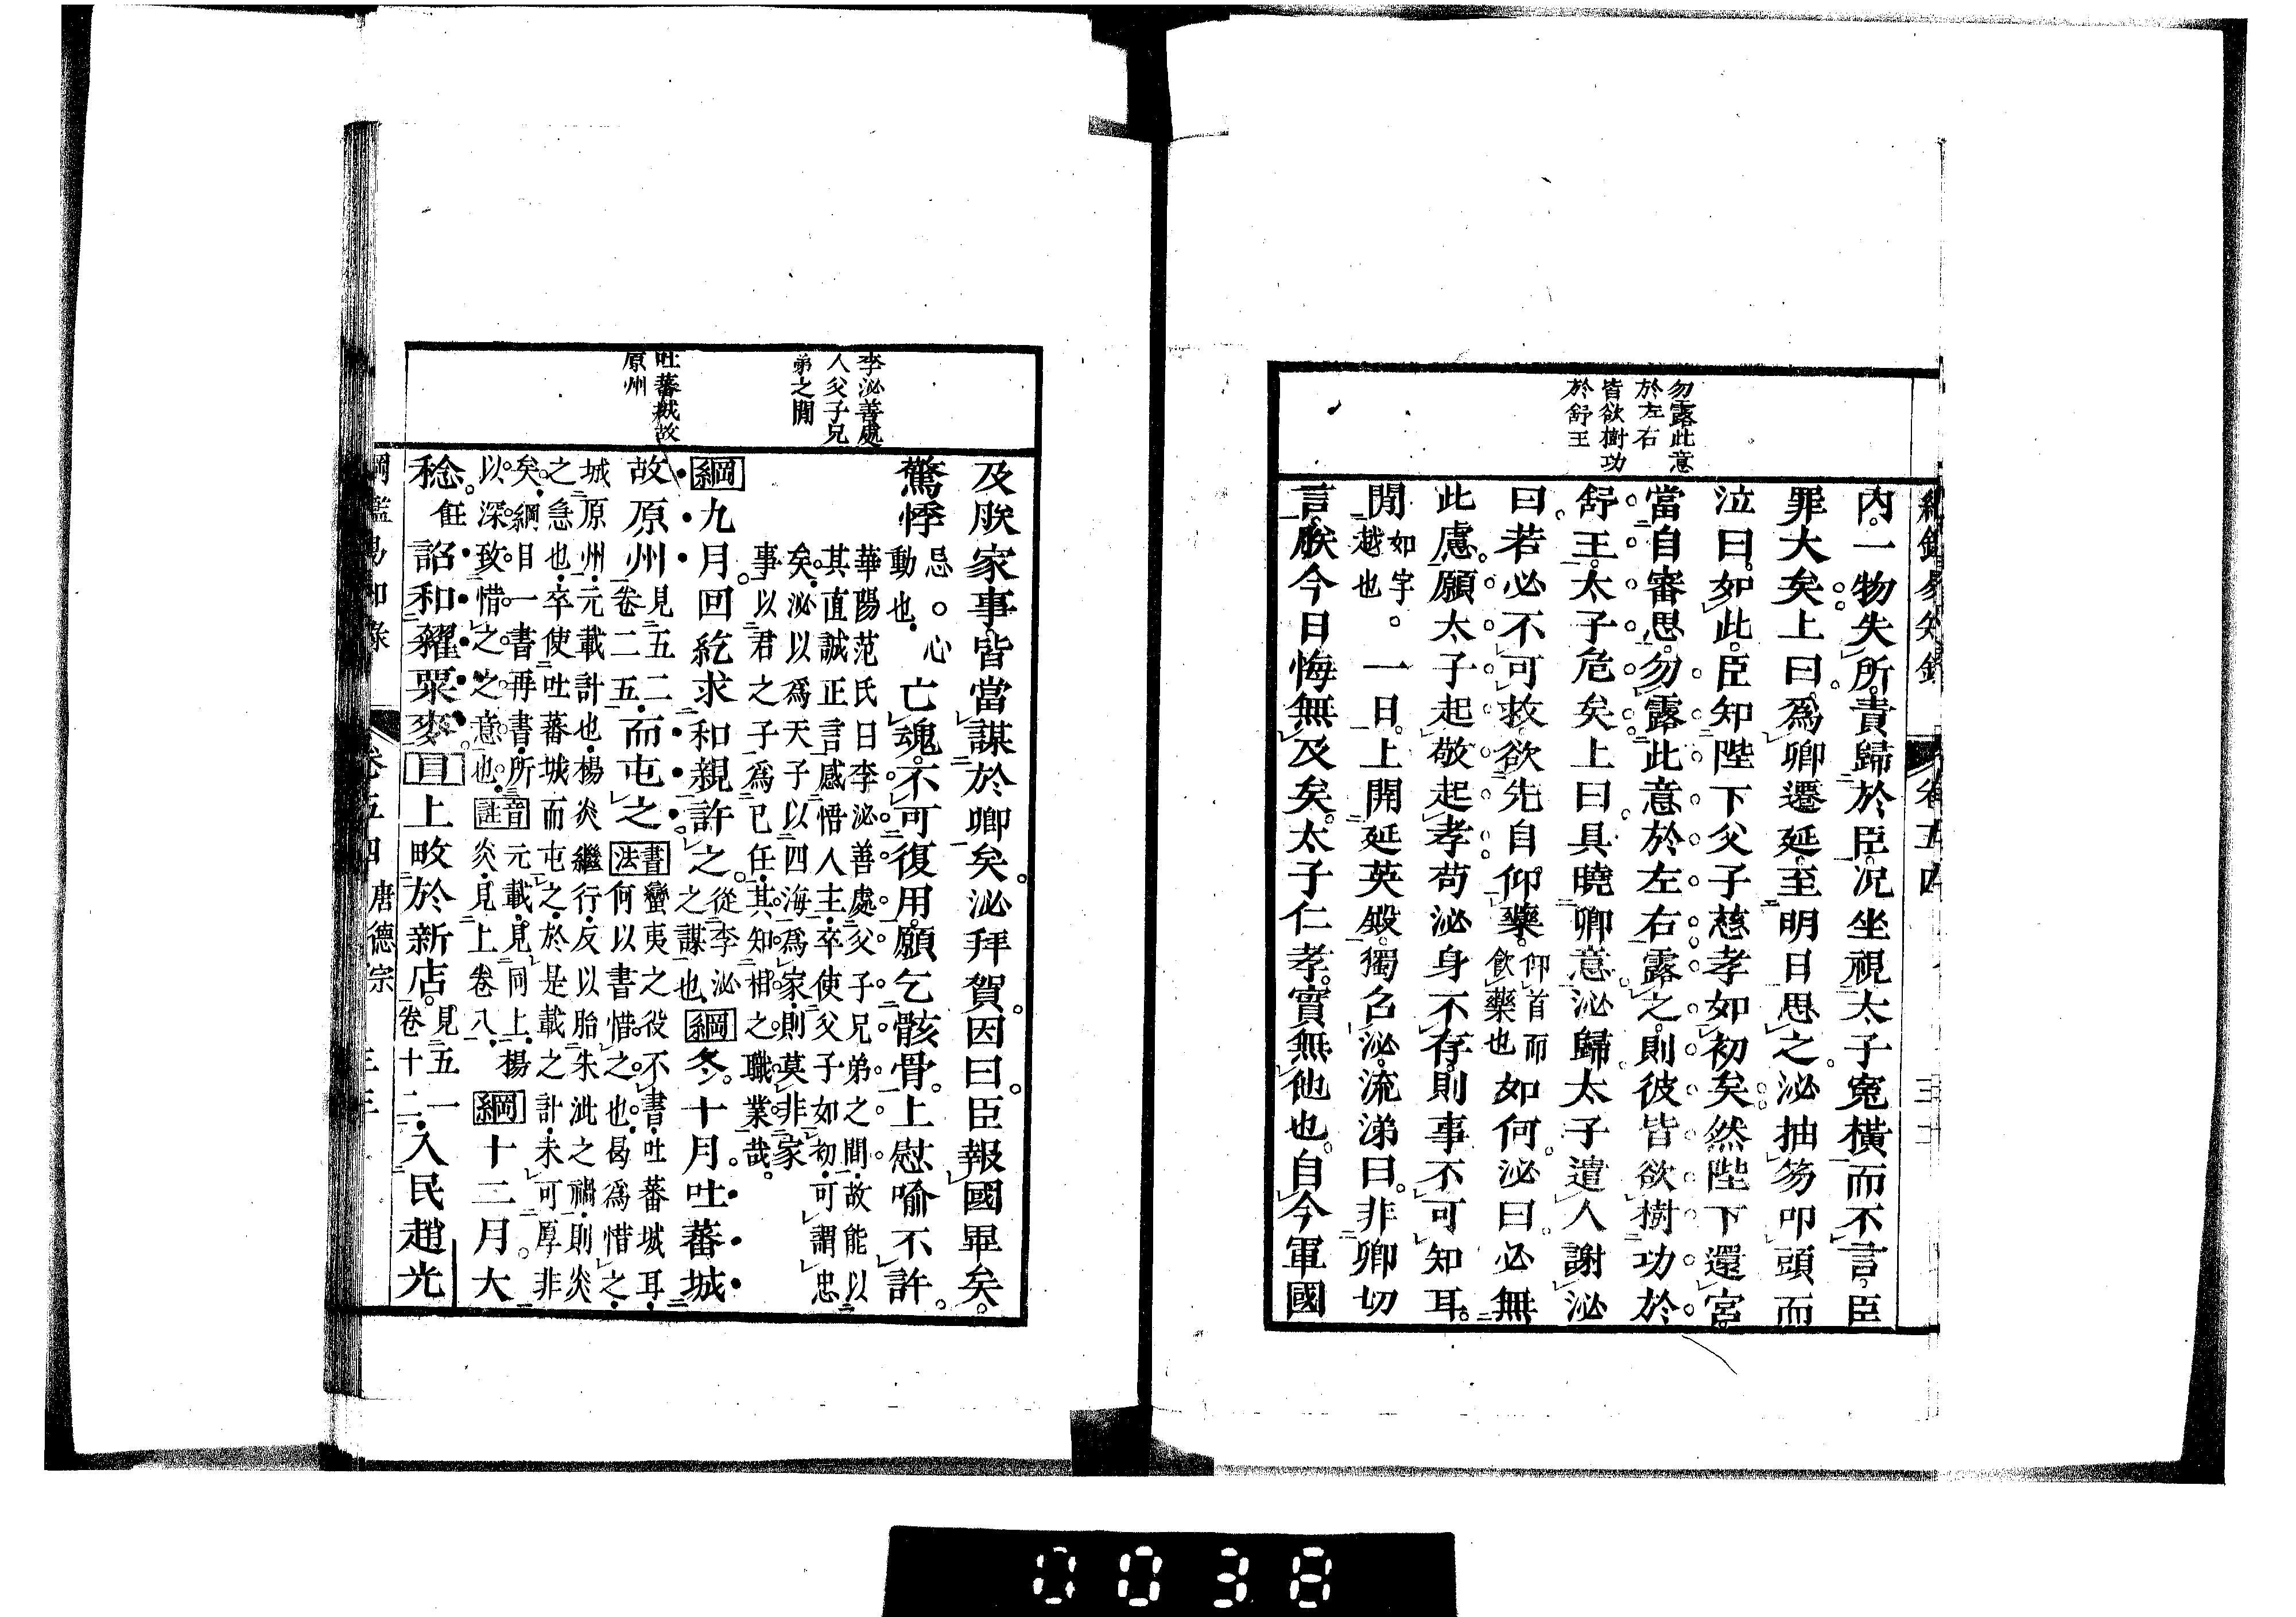 綱鑑易知錄 卷五四
勿露此意
於左右
皆欲樹功
於舒王
內一物失所責歸於臣況坐視太子寃橫而不言臣
罪大矣上曰爲卿遷延至明日思之泌抽笏叩頭而
泣曰如此臣知陛下父子慈孝如初矣然陛下還宮
當自審思勿露此意於左右露之則彼皆欲樹功於
舒王太子危矣上曰具曉卿意泌歸太子遣人謝泌
曰若必不可救欲先自仰藥仰首而飲藥也如何泌曰必無
此慮願太子起敬起孝苟泌身不存則事不可知耳
閒如字。越也一日上開延英殿獨召泌流涕曰非卿切
言朕今日悔無及矣太子仁孝實無他也自今軍國
李泌善處
人父子兄
弟之閒
吐蕃城故
原州
及朕家事皆當謀於卿矣泌拜賀因曰臣報國畢矣
驚悸忌。心動也亡魂不可復用願乞骸骨上慰喻不許
華陽范氏曰李泌善處父子兄弟之間故能以
其直誠正言感悟人主卒使父子如初可謂忠
矣泌以爲天子以四海爲家則莫非家
事以君之子爲已任其知相之職業哉
綱九月回紇求和親許之從李泌之謀也綱冬十月吐蕃城
故原州見五二卷二五而屯之書法蠻夷之役不書吐蕃城耳何以書惜之也曷爲惜之
城原州元載計也楊炎繼行反以胎朱泚之禍則炎
之急也卒使吐蕃城而屯之於是載之計未可厚非
矣綱目一書再書所以深致惜之之意也音註元載見同上楊炎見上卷八綱十二月大
稔飪詔和糴粟麥目上畋於新店見五一卷十二入民趙光
綱鑑易知錄 卷五四 唐德宗